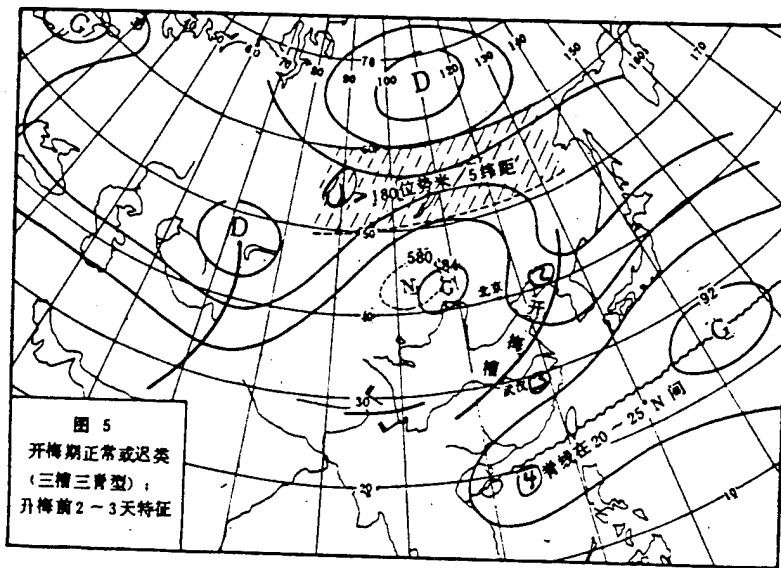 G
60
70
80
90
100
120
130
140
150
160
170
70
D
60
① > 180位势米／5纬距
50
D
580
584
N
G
北京
②
开
梅
槽
40
92
G
武汉③
30
④脊线在20～25°N间
20
10
图 5
开梅期正常或迟类
（三槽三脊型）；
开梅前2～3天特征